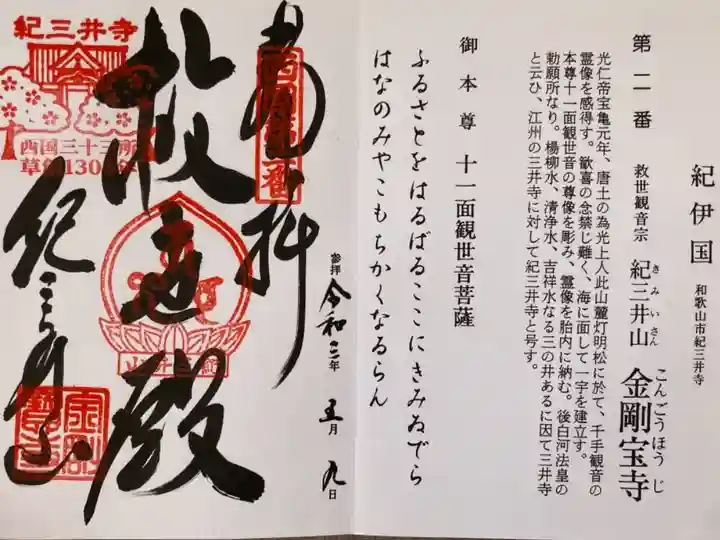 紀伊国
和歌山市紀三井寺
第二番
救世観音宗
紀三井山
きみいさん
金剛宝寺
こんごうほうじ
光仁帝宝亀元年、唐土の為光上人此山麓灯明松に於て、千手観音の
霊像を感得す。歓喜の念禁じ難く、海に面して一宇を建立す。
本尊十一面観世音の尊像を彫み、霊像を胎内に納む。後白河法皇の
勅願所なり。楊柳水、清浄水、吉祥水なる三の井あるに因て三井寺
と云ひ、江州の三井寺に対して紀三井寺と号す。
御本尊
十一面観世音菩薩
ふるさとをはるばるここにきみゐでら
はなのみやこもちかくなるらん
奉拝
参拝
令和三年
五月
九日
救世殿
紀三井寺
紀三井寺
西国三十三所
草創1300年